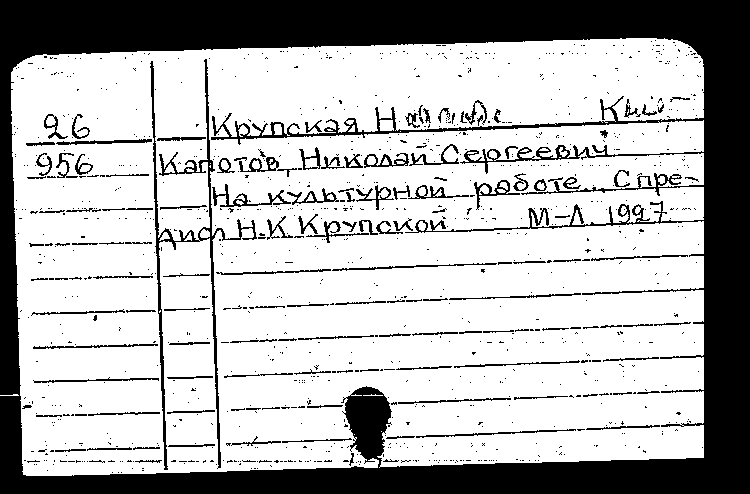 26 Крупская, Н
956 Капотов, Николай Сергеевич
На культурной работе... С пре-
дисл Н.К. Крупской. М-Л. 1927